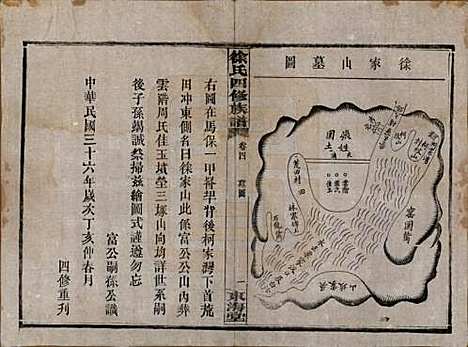 徐家山墓圖
張姓
圖土
雲階
周氏
佳玉
徐氏四修族譜
卷四
墓圖
一
東海堂
右圖在馬保一甲搭學背後柯家灣下首荒
田冲東側名曰徐家山此係富公公山內彝
雲階周氏佳玉墳塋三塚山向均詳世系嗣
後子孫竭誠祭掃茲繪圖式謹遵勿忘
富公嗣孫公識
中華民國三十六年歲次丁亥仲春月
四修重刋